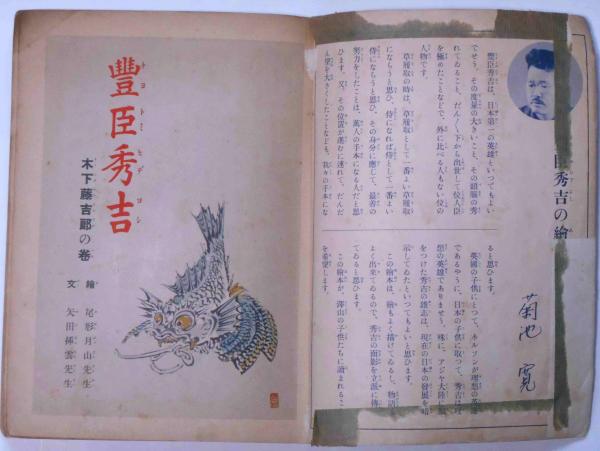 臣秀吉の繪
菊池 寛
豐臣秀吉は、日本第一の英雄といつてもよい
でせう。その度量の大きいこと、その頭腦の秀
れてゐること、だん〳〵下から出世して位人臣
を極めたことなどで、外に比べる人もない位の
人物です。
草履取の時は、草履取として一番よい草履取
にならうと思ひ、侍になれば侍として一番よい
侍にならうと思ひ、その身分に應じて、最善の
努力をしたことは、萬人の手本になる人だと思
ひます。又、その位置が進むに連れて、だんだ
ん望を大きくしたことなども、我々の手本にな
ると思ひます。
英國の子供にとつて、ネルソンが理想の英雄
であるやうに、日本の子供に取つて、秀吉は理
想の英雄でありませう。殊に、アジヤ大陸に志
をつけた秀吉の雄志は、現在の日本の發展を暗
示してゐたといつてもよいと思ひます。
この繪本は、繪もよく描けてゐるし、物語も
よく出來てゐるので、秀吉の面影を立派に傳へ
てゐると思ひます。
この繪本が、澤山の子供たちに讀まれるこ
を希望します。
豐臣秀吉
トヨトミヒデヨシ
木下藤吉郎の卷
繪 尾形月山先生
文 矢田挿雲先生